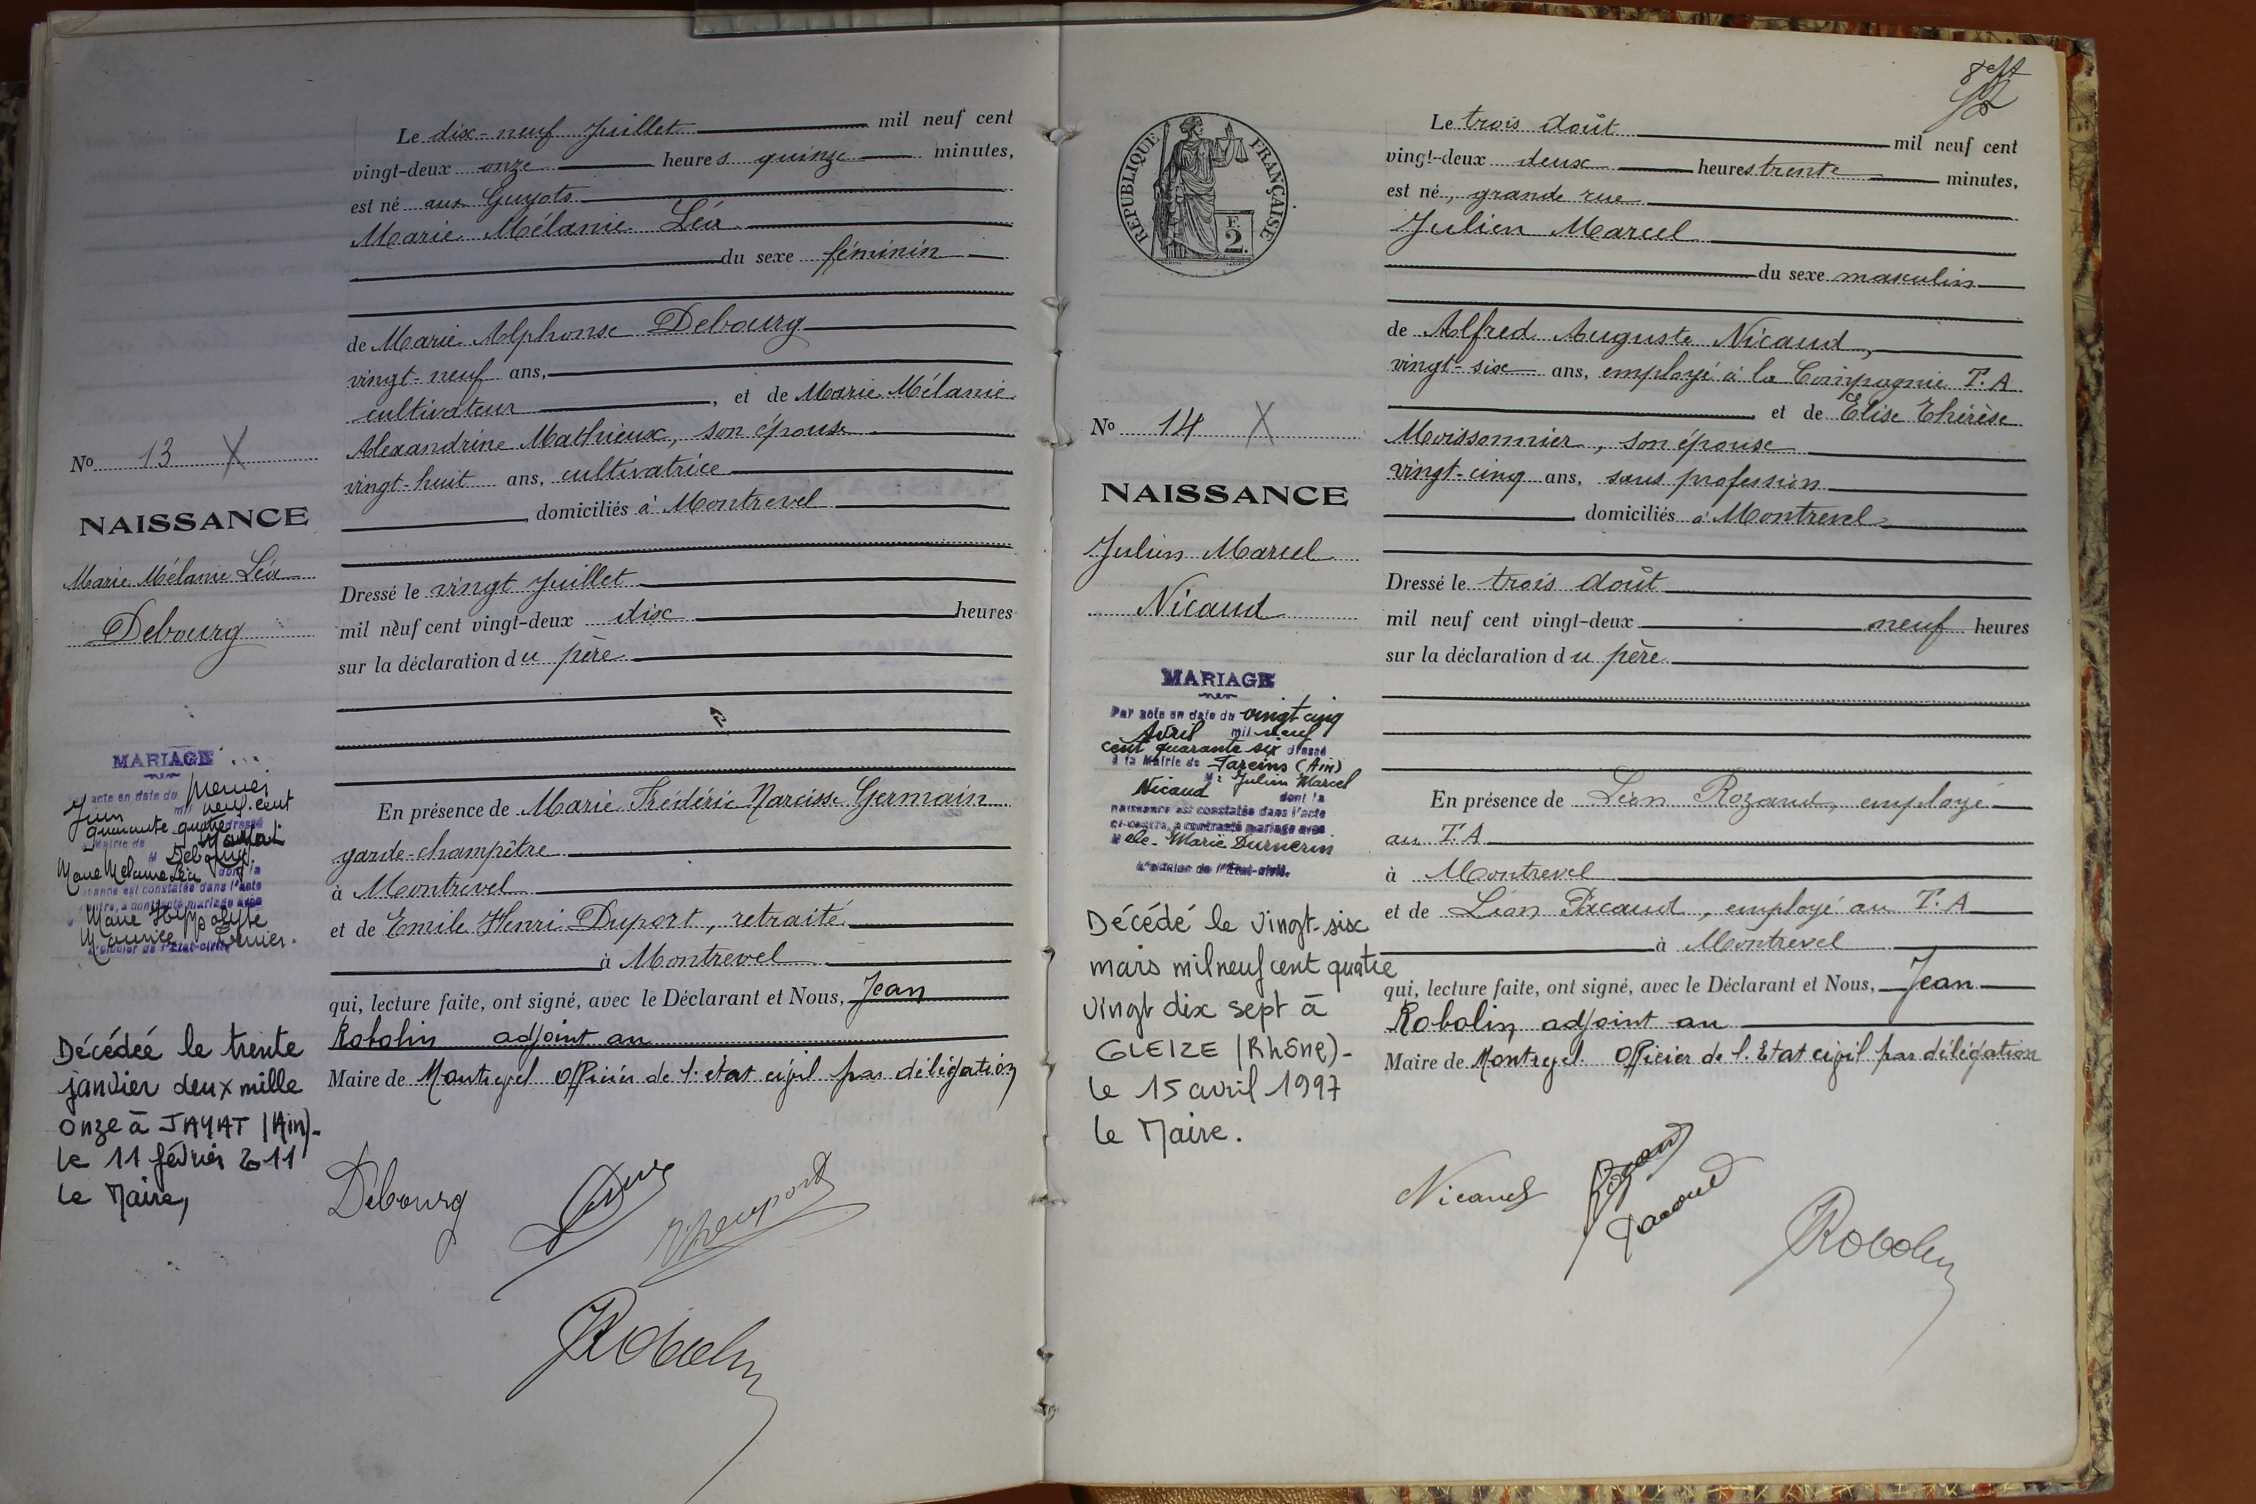 Le dix-neuf Juillet mil neuf cent
vingt-deux onze heures quinze minutes,
est né aux Guyots
Marie Mélanie Léa
du sexe féminin
de Marie Alphonse Debourg
vingt-neuf ans,
cultivateur, et de Marie Mélanie
Alexandrine Mathieux, son épouse
vingt-huit ans, cultivatrice
domiciliés à Montrevel
Dressé le vingt Juillet
mil neuf cent vingt-deux dix heures
sur la déclaration du père
En présence de Marie Frédéric Narcisse Germain
garde-champêtre
à Montrevel
et de Emile Henri Duport, retraité
à Montrevel
qui, lecture faite, ont signé, avec le Déclarant et Nous, Jean
Robolin adjoint au
Maire de Montrevel Officier de l'état civil par délégation
Debourg
Robolin
No 13 X
NAISSANCE
Marie Mélanie Léa
Debourg
MARIAGE
acte en date du premier
Juin mil neuf cent
quarante quatre dressé
Mairie de
M Debourg
Marie Mélanie Léa dont la
naissance est constatée dans l'acte
contracté mariage avec
Marie Hyppolyte
Maurice
L'Officier de l'État-civil
Décédée le trente
janvier deux mille
onze à JAYAT (Ain)-
le 11 février 2011
Le Maire,
8
RÉPUBLIQUE FRANÇAISE
F.
2
Le trois Août mil neuf cent
vingt-deux deux heures trente minutes,
est né, grande rue
Julien Marcel
du sexe masculin
de Alfred Auguste Nicaud,
vingt-six ans, employé à la Compagnie T.A
et de Elise Thérèse
Moissonnier, son épouse
vingt-cinq ans, sans profession
domiciliés à Montrevel
Dressé le trois Août
mil neuf cent vingt-deux neuf heures
sur la déclaration du père
En présence de Léon Rozand, employé
au T.A
à Montrevel
et de Léon Pacaud, employé au T.A
à Montrevel
qui, lecture faite, ont signé, avec le Déclarant et Nous, Jean
Robolin, adjoint au
Maire de Montrevel Officier de l'Etat civil par délégation
Nicaud
Rozand
Pacaud
Robolin
No 14 X
NAISSANCE
Julien Marcel
Nicaud
MARIAGE
Par acte en date du vingt cinq
Avril mil neuf
cent quarante six dressé
à la Mairie de Fareins (Ain)
Mr Julien Marcel
Nicaud dont la
naissance est constatée dans l'acte
ci-contre, a contracté mariage avec
Melle Marie Durnerin
L'Officier de l'État-civil.
Décédé le vingt-six
mars mil neuf cent quatre
vingt dix sept à
GLEIZE (Rhône)-
le 15 avril 1997
le Maire.